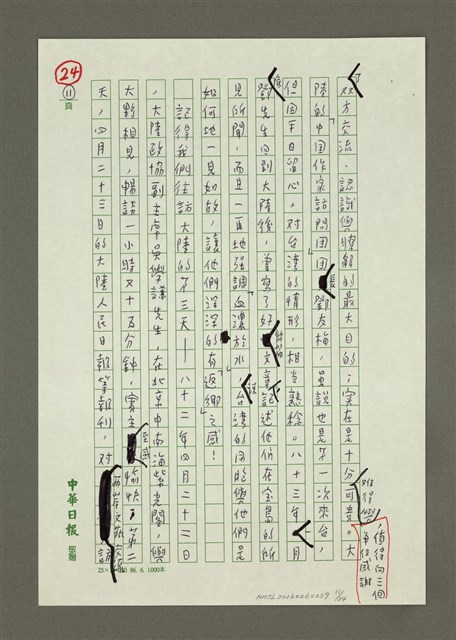 24
11
頁
双方交流、認識與瞭解的最大目的;实在是十分可貴。大
陸的「中国作家訪問团」团長鄧友梅,虽說也是第一次來台,
但因平日留心,对台湾的情形,相当熟稔。八十三年一月
鄧先生回到大陸後,曾寫了好幾篇文章記述他们在宝島的所
見所聞,而且一再地强調「血濃於水」,台湾的同胞與他們是
如何地一見如故,讓他們深深的有「返鄉」之感!
記得我們往訪大陸的第三天——八十二年四月二十二日
,大陸政協副主席吳學謙先生,在北京中南海紫光閣,與
大夥相見,暢談一小時又十五分鐘,賓主至感愉快;第二
天,四月二十三日的大陸人民日報等報刊,对兩岸文藝交流
值得向三個單位感謝
中華日報
稿紙
25× 86. 6. 1,000本
NMTL20160260239 11/14